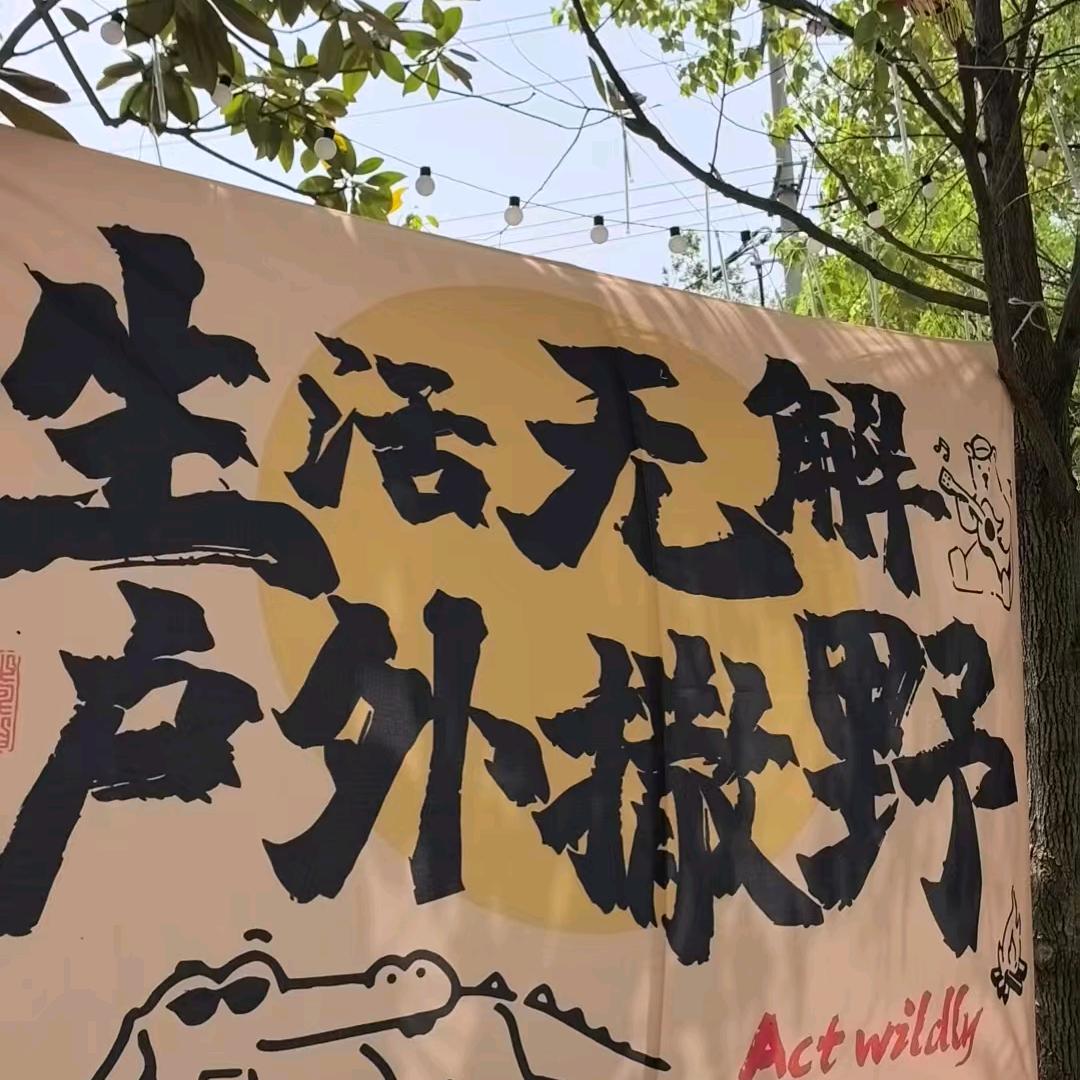 生活无解
户外撒野
Act wildly